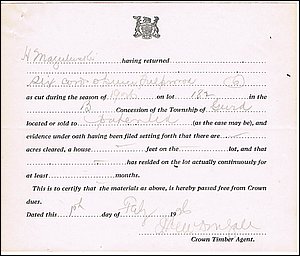 H. having returned
Six cords (6)
as cut during the season of 190 on lot 182 in the
B Concession of the Township of Gurd
located or sold to (as the case may be), and
evidence under oath having been filed setting forth that there are
acres cleared, a house — feet on the lot, and that
— has resided on the lot actually continuously for
at least months.
This is to certify that the materials as above, is hereby passed free from Crown
dues.
Dated this 1st day of Feb 190
Crown Timber Agent.